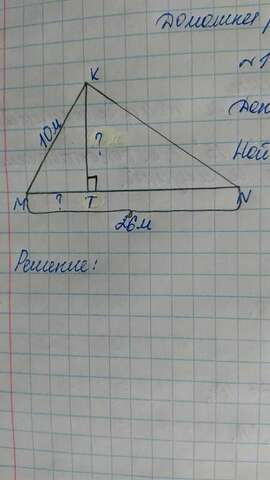 Домашняя р
№1
Дан
Най
K
10м
?
M ? T N
26м
Решение: